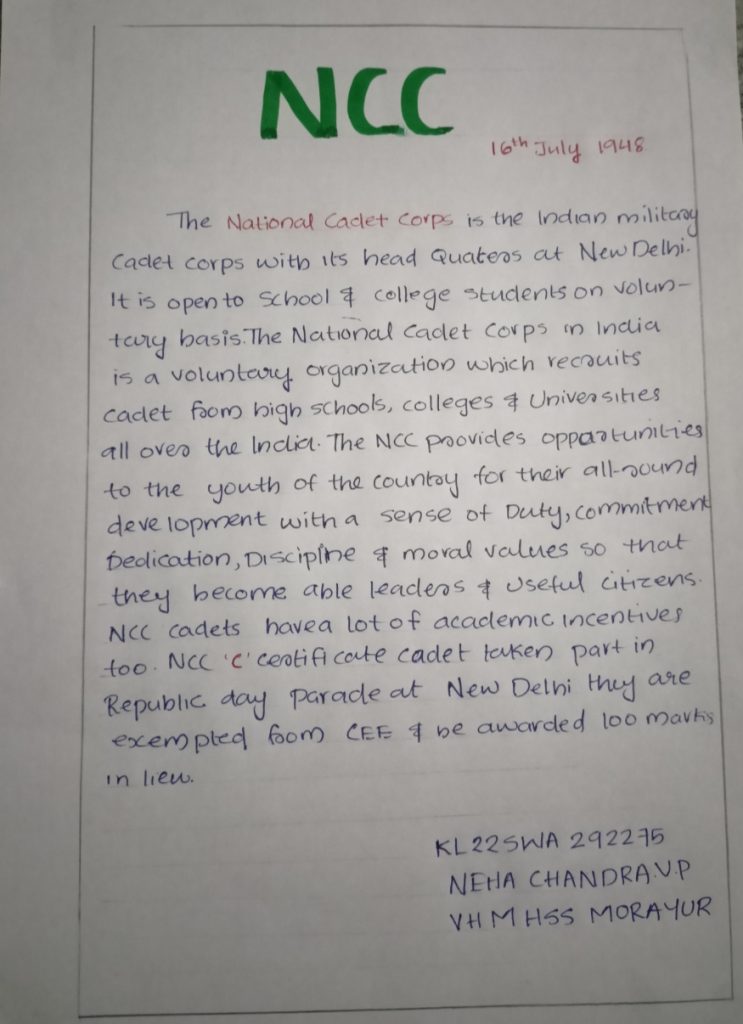 NCC
16th July 1948
The National Cadet Corps is the Indian military
Cadet corps with its head Quaters at New Delhi.
It is open to School & college students on volun-
tary basis. The National Cadet Corps in India
is a voluntary organization which recruits
cadet from high schools, colleges & Universities
all over the India. The NCC provides opportunities
to the youth of the country for their all-round
development with a sense of Duty, commitment
Dedication, Discipline & moral values so that
they become able leaders & useful citizens.
NCC cadets have a lot of academic incentives
too. NCC 'C' certificate cadet taken part in
Republic day parade at New Delhi they are
exempted from CEE & be awarded 100 marks
in lieu.
KL22SWA 292275
NEHA CHANDRA.V.P
VHM HSS MORAYUR